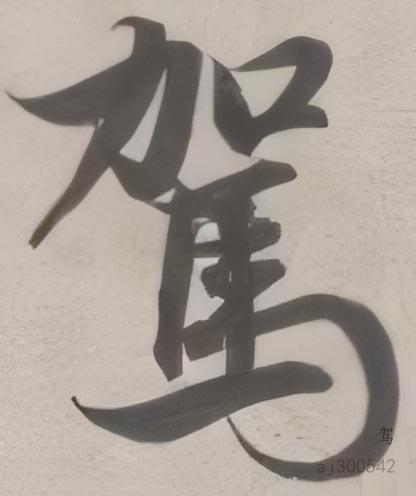 駕
驾
aj300542